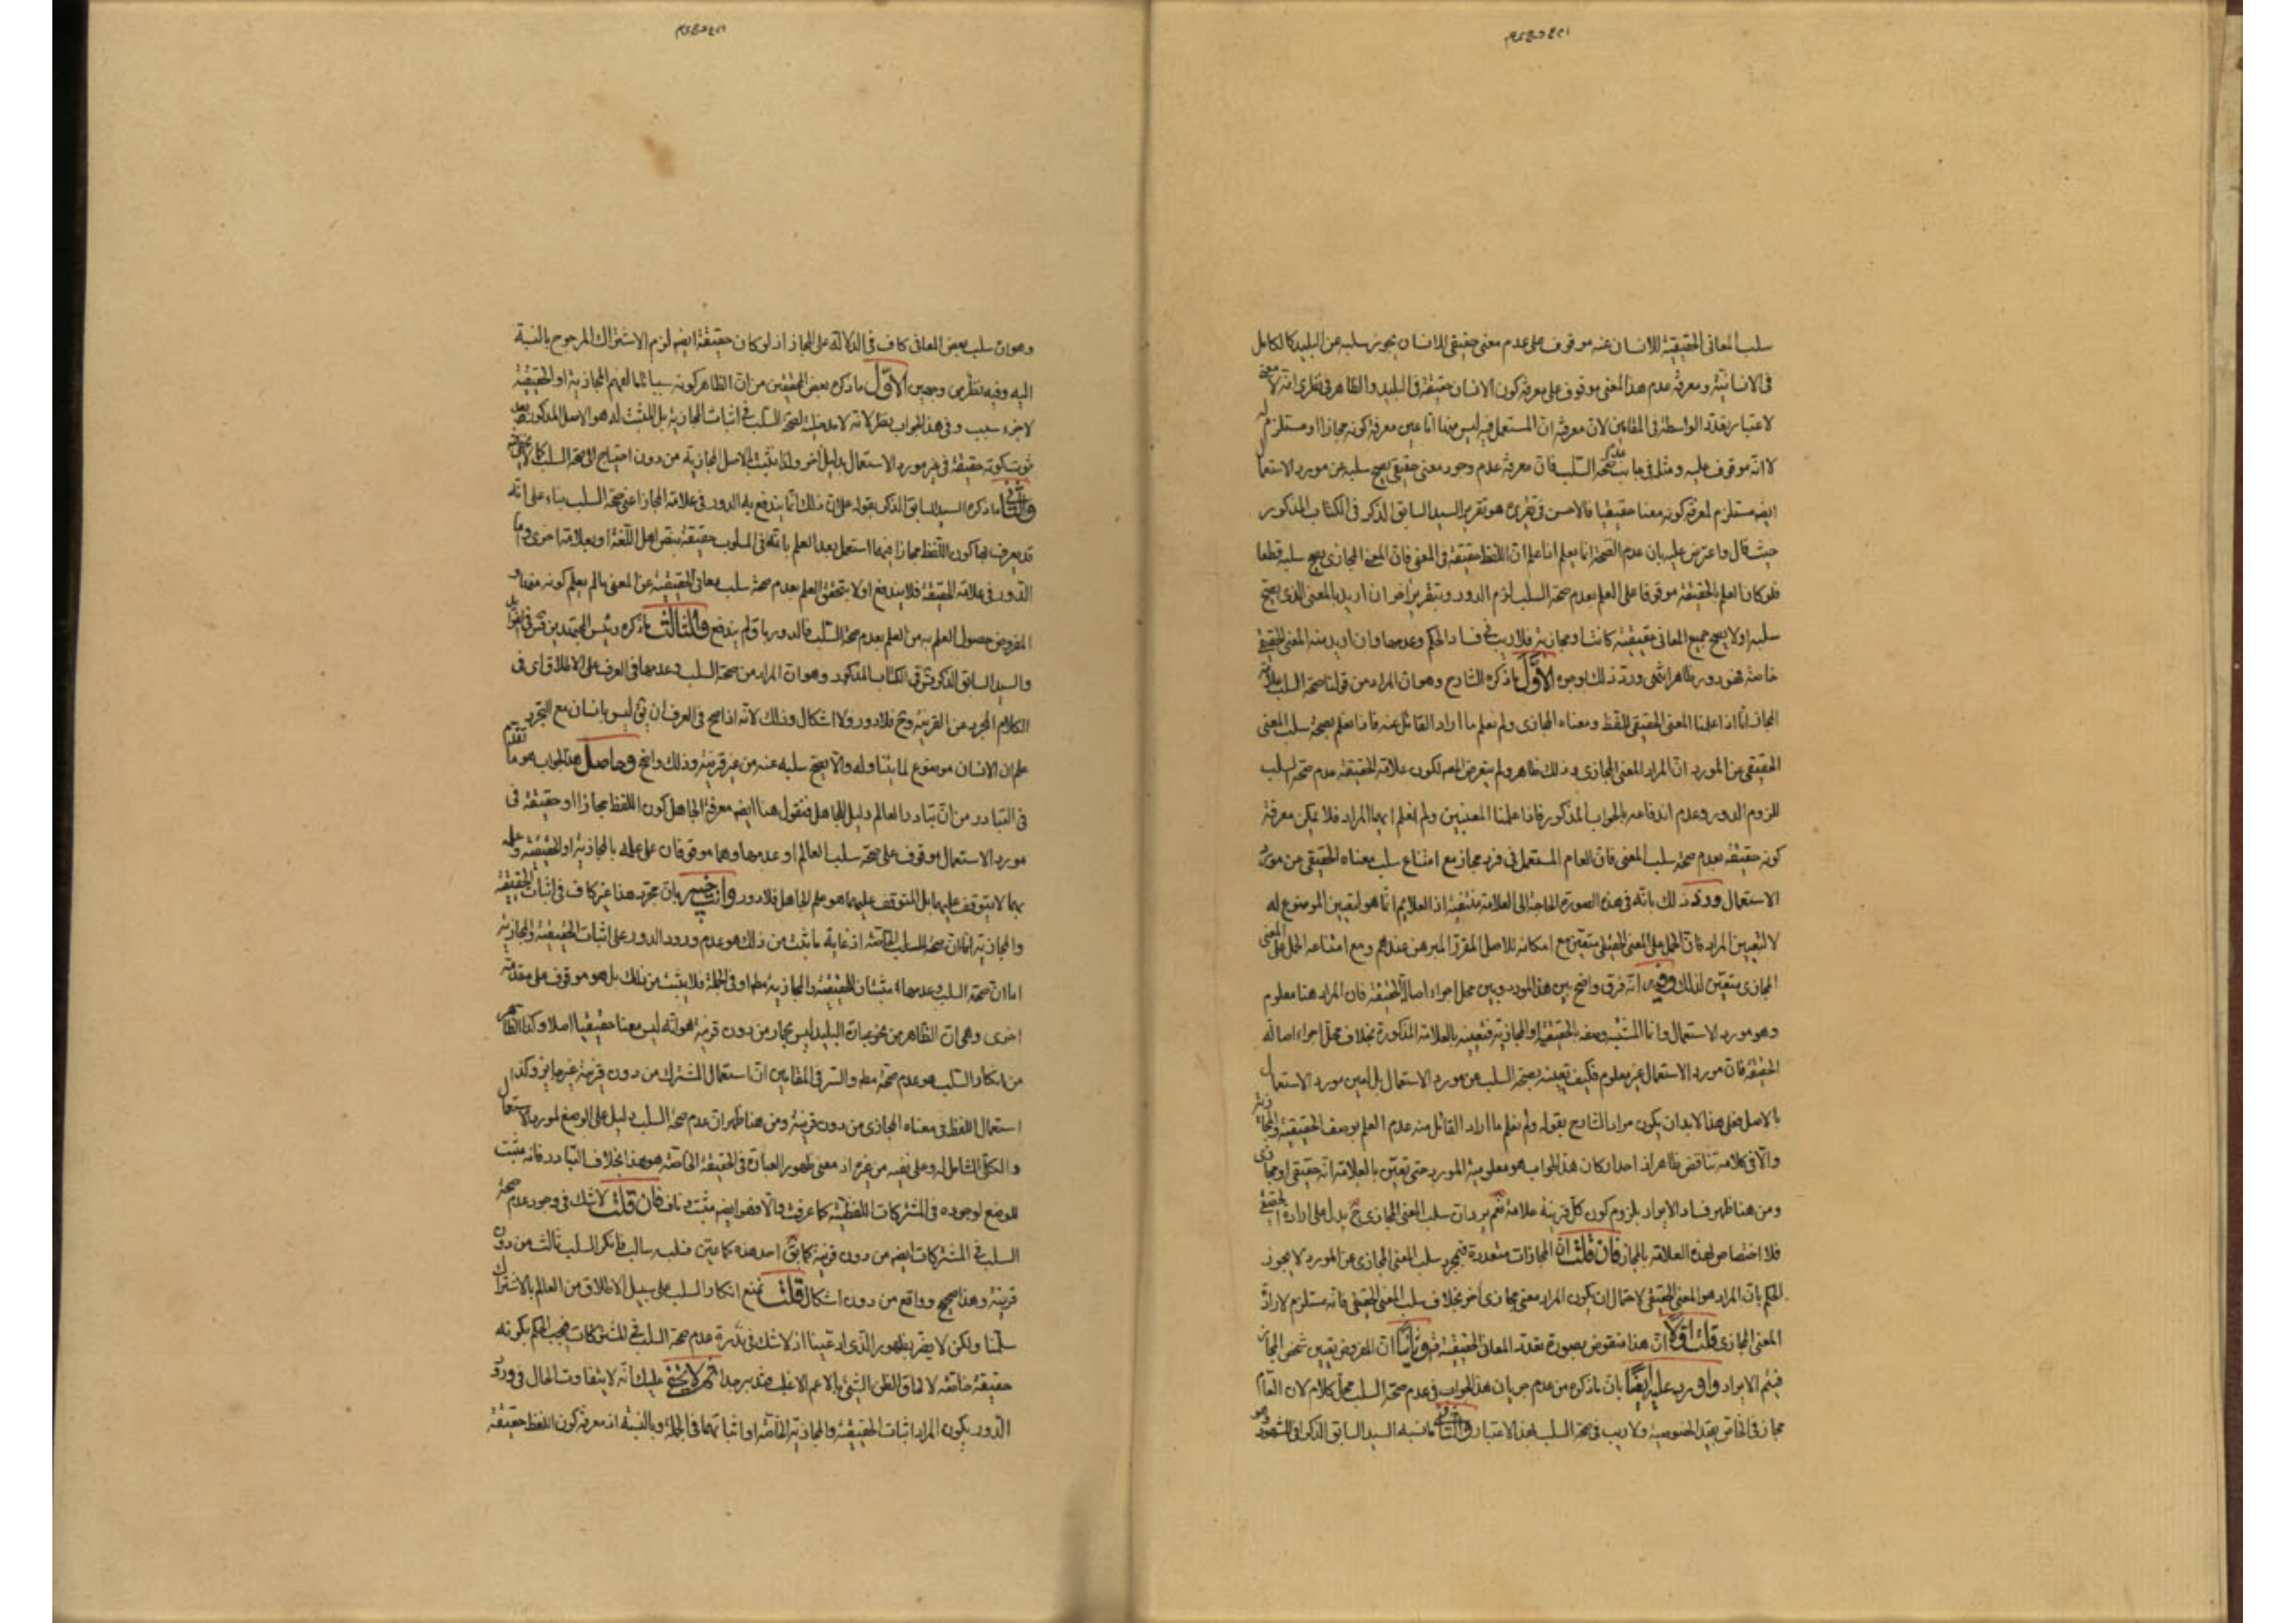 سلب المعانى الحقيقية للانسان عنه موقوف على عدم معنى حقيقى للانسان يجوز سلبه عن البليد كالكامل
فى الانسانية ومعرفة عدم هذا المعنى موقوف على معرفة كون الانسان حقيقة فى البليد والظاهر فى نظرى انه لا معنى
لاعتبار تعدد الواسطة فى المقامين لان معرفة ان المستعمل فيه ليس منها اما عين معرفة كونه مجازا او مستلزم له
لا انه موقوف عليه ومثل فى جانب عدم صحة السلب فان معرفة عدم وجود معنى حقيقى يصح سلبه عن مورد الاستعمال
ايضه مستلزم لمعرفة كونه معنا حقيقيا فالاحسن فى تقريره هو تقرير السيد السابق الذكر فى الكتاب المذكور
حيث قال واعترض عليه بان عدم الصحة انما يعلم اذا علم ان اللفظ حقيقة فى المعنى فان المعنى المجازى يصح سلبه قطعا
فلو كان العلم بالحقيقة موقوفا على العلم بعدم صحة السلب لزم الدور وبتقرير اخر ان اريد بالمعنى الذى يصح
سلبه او لا يصح جميع المعانى حقيقية كانت او مجازية فلا ريب فى فساد الحكم وعدمها وان اريد منه المعنى الحقيقى
خاصة فهو دور ظاهر انتهى ورد ذلك بوجوه الاول ما ذكره الشارح وهو ان المراد من قولنا صحة السلب علامة
المجاز انا اذا علمنا المعنى الحقيقى للفظ ومعناه المجازى ولم نعلم ما اراد القائل عنه فاذا نعلم بصحة سلب المعنى
الحقيقى عن المورد ان المراد المعنى المجازى وذلك ظاهر ولم يتعرض المص لكون علامة الحقيقة عدم صحة السلب
للزوم الدور وعدم اندفاعه بالجواب المذكور فاذا علمنا المعنيين ولم نعلم ايهما المراد فلا يمكن معرفة
كونه حقيقة بعدم صحة سلب المعنى فان العام المستعمل فى فرد مجاز مع امتناع سلب معناه الحقيقى عن مورد
الاستعمال ورد ذلك بانه فى هذه الصورة الحاجة الى العلامة منتفية اذ العلايم انما هو لتعيين الموضوع له
لا لتعيين المراد فان الحمل على المعنى الحقيقى متعين مع امكانه للاصل المقرر المبرهن عندهم ومع امتناعه الحمل على المعنى
المجازى متعين لذلك وفيه انه فرق واضح بين هذا المورد وبين محل اجراء اصالة الحقيقة فان المراد هنا معلوم
وهو مورد الاستعمال وانما المشتبه وصفه بالحقيقية او المجازية فتعيينه بالعلامة المذكورة بخلاف محل اجراء اصالة
الحقيقة فان مورد الاستعمال غير معلوم فكيف تعيينه بصحة السلب عن مورد الاستعمال بل تعيين مورد الاستعمال
بالاصل فعلى هذا لا بد ان يكون مراد الشارح بقوله ولم نعلم ما اراد القائل منه عدم العلم بوصف الحقيقية والمجازية
والا فى كلامه تناقض ظاهر اذ احد اركان هذا الجواب هو معلومية المورد حتى تعين بالعلامة انه حقيقى او مجازى
ومن هنا ظهر فساد الايراد بلزوم كون كل قرينة علامة نعم يرد ان سلب المعنى المجازى ح يدل على ارادة الحقيقى
فلا اختصاص لهذه العلامة بالمجاز فان قلت ان المجازات متعددة فبمجرد سلب المعنى المجازى عن المورد لا يجوز
الحكم بان المراد هو المعنى الحقيقى لاحتمال ان يكون المراد معنى مجازى اخر بخلاف سلب المعنى الحقيقى فانه مستلزم لارادة
المعنى المجازى قلت اولا ان هذا منقوض بصورة تعدد المعانى الحقيقية وثانيا ان المفروض تعيين شخص المجاز
فيتم الايراد واورد عليه ايضا بان ما ذكره من عدم جريان هذا الجواب فى عدم صحة السلب محل كلام لان العام
مجاز فى الخاص بقيد الخصوصية ولا ريب فى صحة السلب بهذا الاعتبار والثانى ما نسبه السيد السابق الذكر الى المشهور وهو
وهو ان سلب بعض المعانى كاف فى الدلالة على المجاز اذ لو كان حقيقة ايضه لزم الاشتراك المرجوح بالنسبة
اليه وفيه نظر من وجهين الاول ما ذكره بعض المحققين من ان الظاهر كونه سببا تاما لفهم المجازية او الحقيقية
لا جزء سبب وفى هذا الجواب نظر لانه لا مدخلية لصحة السلب فى اثبات المجازية بل المثبت له هو الاصل المذكور بعد
ثبوت كونه حقيقة فى غير مورد الاستعمال بدليل اخر ولذا يثبت بالاصل المجازية من دون احتياج الى صحة السلب كما لا يخفى
والثانى ما ذكره السيد السابق الذكر بقوله على ان ذلك انما يندفع به الدور فى علامة المجاز اعنى صحة السلب بناء على انه
قد يعرف بها كون اللفظ مجازا فيما استعمل بعد العلم بانه فى المسلوب حقيقة بنص اهل اللغة او بعلامة اخرى واما
الدور فى علامة الحقيقة فلا يندفع اذ لا يتحقق العلم بعدم صحة سلب معانى الحقيقية عن المعنى ما لم يعلم كونه منها و
المفروض حصول العلم به من العلم بعدم صحة السلب فالدور باق لم يندفع والثالث ما ذكره رئيس المجتهدين قدس سره فى
والسيد السابق الذكر فى الكتاب المذكور وهو ان المراد من صحة السلب وعدمها فى العرف على الاطلاق اى فى
الكلام المجرد عن القرينة وح فلا دور ولا اشكال وذلك لانه اذا صح فى العرف ان يق ليس بانسان مع التجرد
علم ان الانسان موضوع لما يتناوله والا يصح سلبه عنه من غير قرينة وذلك واضح وحاصل هذا الجواب هو ما تقدم
فى التبادر من ان تبادر العالم دليل للجاهل فنقول هنا ايضه معرفة الجاهل كون اللفظ مجازا او حقيقة فى
مورد الاستعمال موقوف على صحة سلب العالم او عدمها وهما موقوفان على علمه بالمجازية او الحقيقية وعلمه
بهما لا يتوقف عليهما بل المتوقف عليهما هو علم الجاهل فلا دور وانت خبير بان مجرد هذا غير كاف فى اثبات الحقيقية
والمجازية صحة السلب الخاصة اذ غاية ما يثبت من ذلك هو عدم ورود الدور على اثبات الحقيقية والمجازية
اما ان صحة السلب وعدمها مثبتان للحقيقية والمجازية مطه او فى الجملة فلا يثبت من ذلك بل هو موقوف على مقدمة
اخرى وهى ان الظاهر من نحو عبارة البليد ليس بحمار من دون قرينة هو انه ليس معنا حقيقيا اصلا وكذا الظاهر
من انكار السلب هو عدم صحته مطه والسر فى المقامين ان استعمال المشترك من دون قرينة غير جايز وكذا
استعمال اللفظ فى معناه المجازى من دون قرينة ومن هنا ظهر ان عدم صحة السلب دليل على الوضع لمورد الاستعمال
والكلى الشامل له وعلى نفيه من غيره اذ معنى ظهور العبارة فى الحقيقة الخاصة هو هذا بخلاف التبادر فانه مثبت
للوضع لوجوده فى المشتركات اللفظية كما عرفت والا فهو ايضه مثبت وناف فان قلت لا شك فى وجود عدم صحة
السلب فى المشتركات ايضه من دون قرينة كما يق احد هذه كما عين فسلبه سالب فانكر السلب ثالث من دون
قرينة وهذا صحيح وواقع من دون اشكال قلت نمنع انكار السلب على سبيل الاطلاق من العالم بالاشتراك
سلمنا ولكن لا يضر بظهور الذى ادعينا اذ لا شك فى ندرة عدم صحة السلب فى المشتركات فيجب الحكم بكونه
حقيقة خاصة لالحاق الظن الشئ بالاعم الاغلب فتدبر جدا ثم لا يخفى عليك انه لا يتفاوت الحال فى ورود
الدور بكون المراد اثبات الحقيقية والمجازية الخاصة او اثباتهما فى الجملة وبالنسبة اذ معرفة كون اللفظ حقيقة